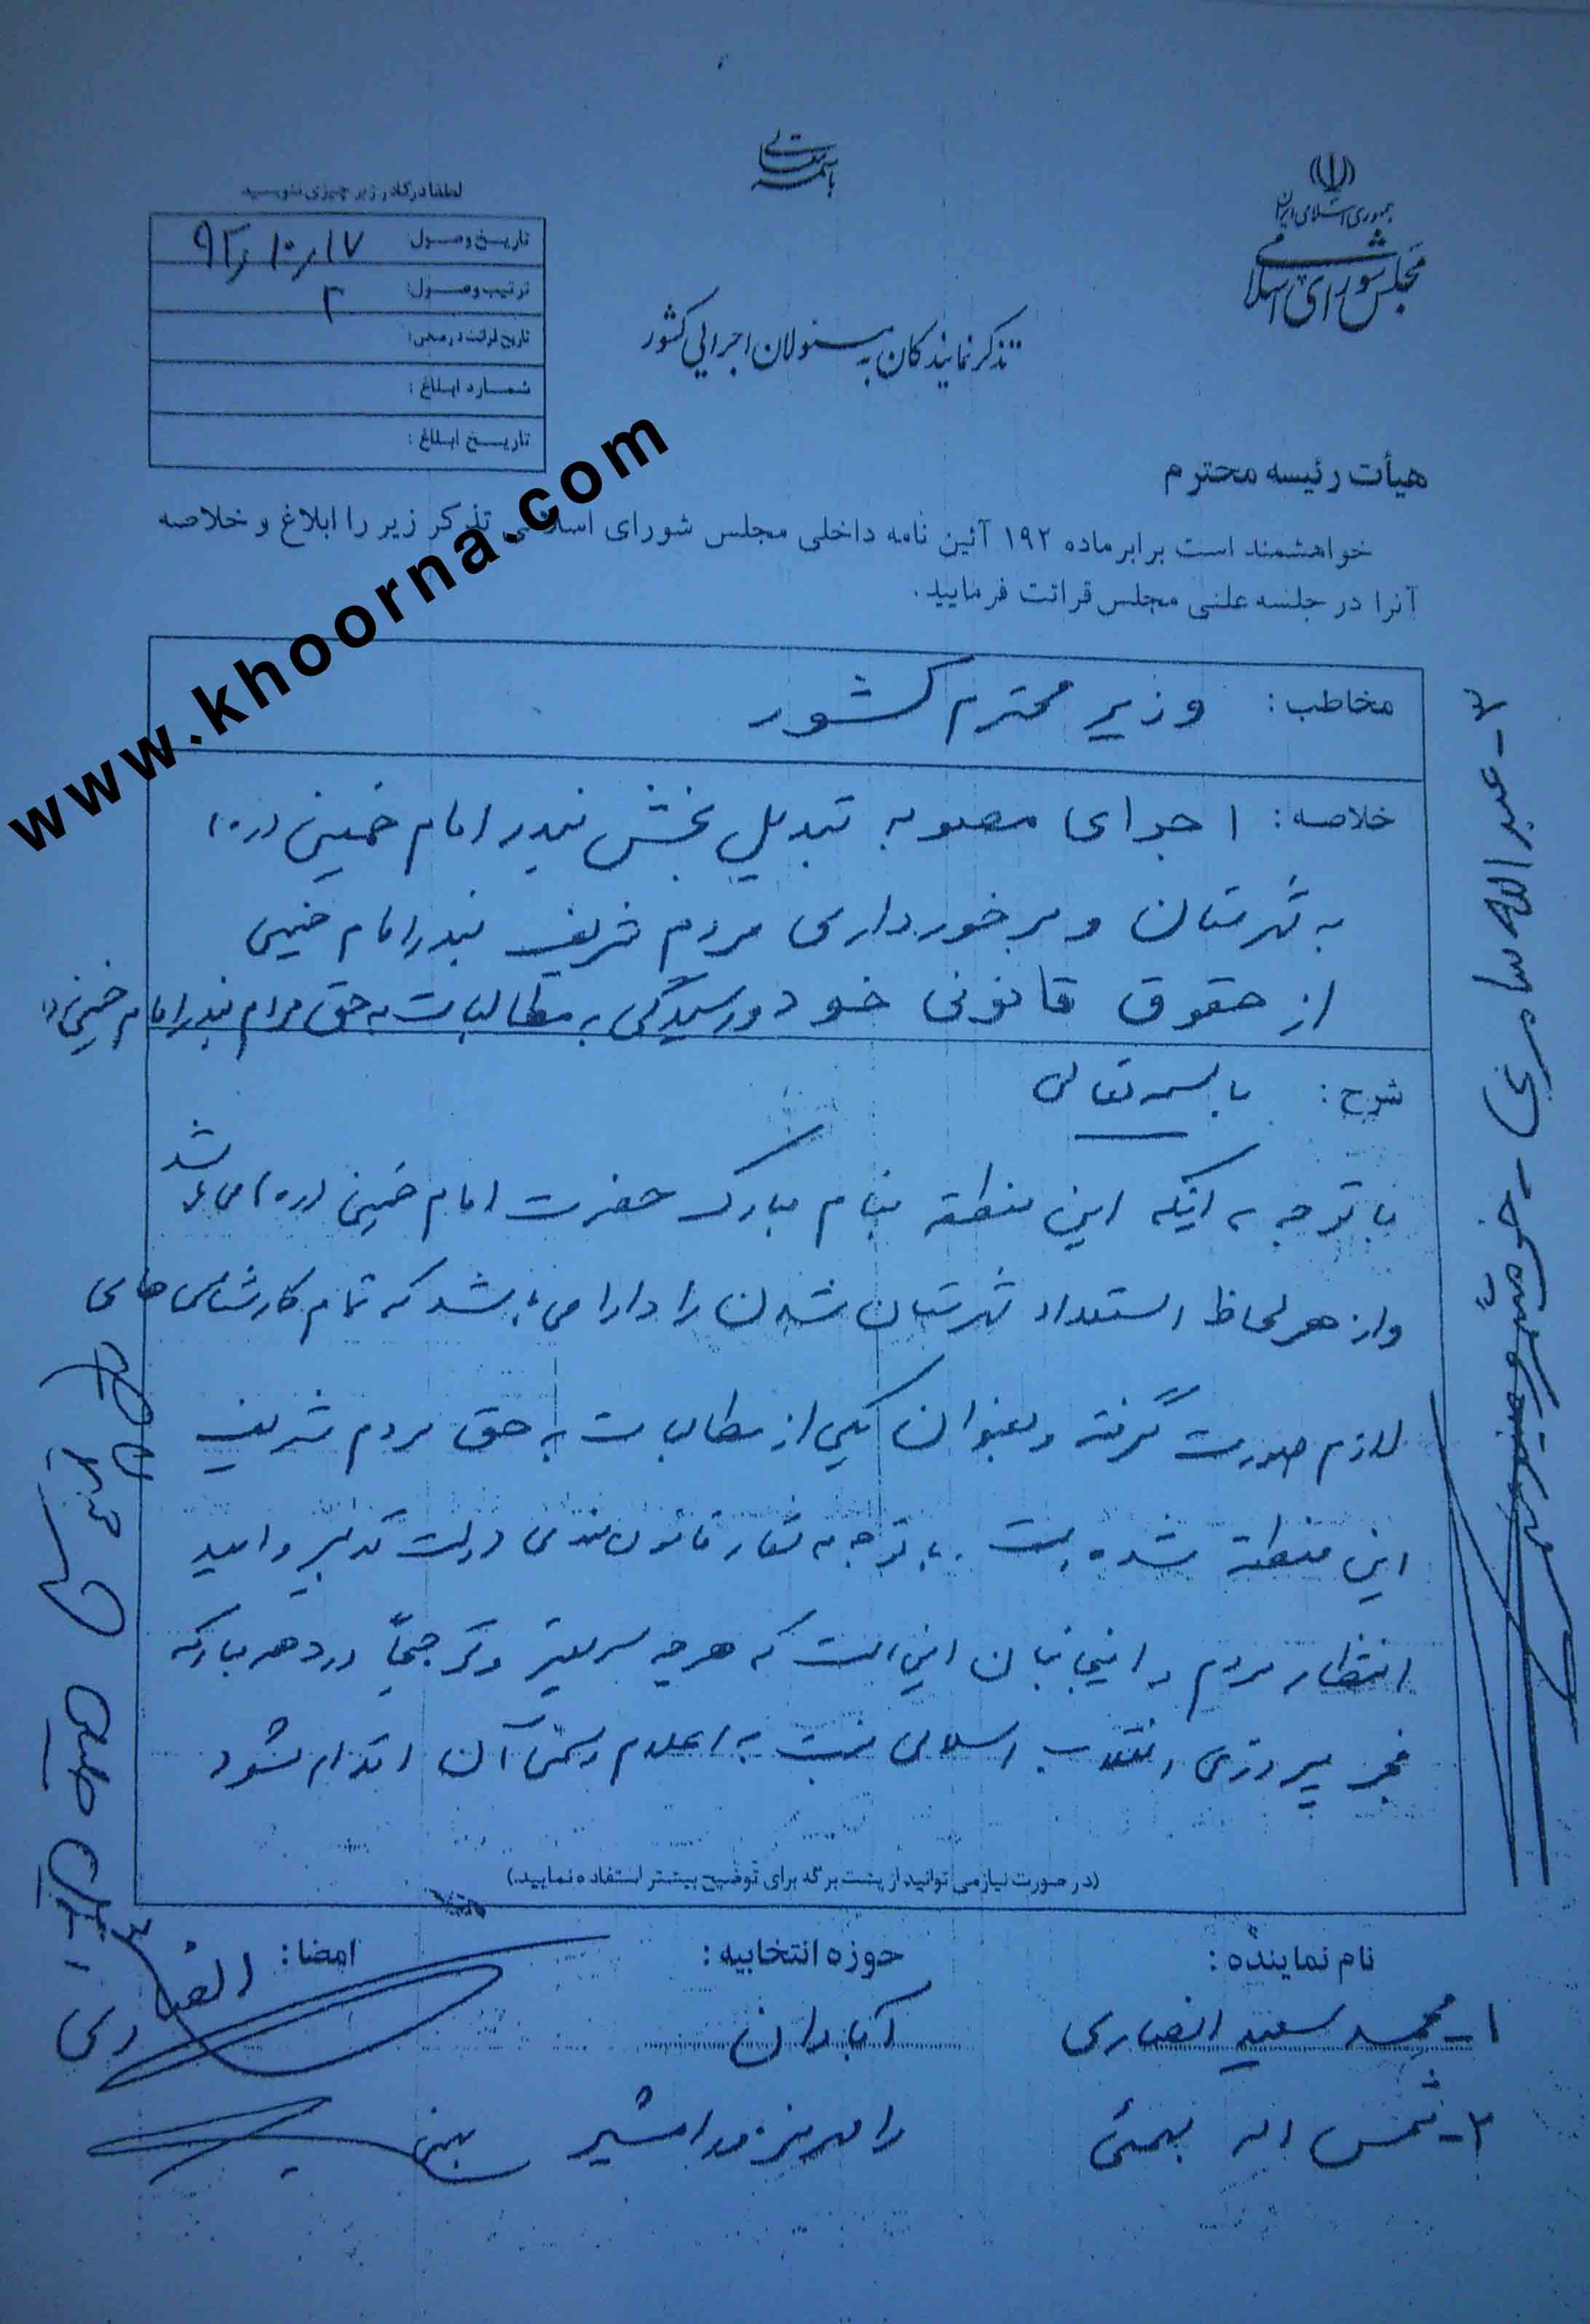 باسمه تعالی
جمهوری اسلامی ایران
مجلس شورای اسلامی
لطفا در کادر زیر چیزی ننویسید
تاریخ وصول: ۹۲٫۱۰٫۱۷
ترتیب وصول: ۲
تاریخ قرائت در صحن:
شماره ابلاغ:
تاریخ ابلاغ:
تذکر نمایندگان به مسئولان اجرایی کشور
هیأت رئیسه محترم
خواهشمند است برابر ماده ۱۹۲ آئین نامه داخلی مجلس شورای اسلامی تذکر زیر را ابلاغ و خلاصه
آنرا در جلسه علنی مجلس قرائت فرمایید.
www.khoorna.com
مخاطب: وزیر محترم کشور
خلاصه: اجرای مصوبه تبدیل بخش بندر امام خمینی (ره)
به شهرستان و برخورداری مردم شریف بندر امام خمینی
از حقوق قانونی خود و رسیدگی به مطالبات به حق مردم بندر امام خمینی (ره)
شرح: باسمه تعالی
با توجه به اینکه این منطقه بنام مبارک حضرت امام خمینی (ره) می باشد
و از هر لحاظ استعداد شهرستان شدن را دارا می باشد که تمام کارشناسی های
لازم صورت گرفته و بعنوان یکی از مطالبات به حق مردم شریف
این منطقه شده است . با توجه به شعار قانون مندی دولت تدبیر و امید
انتظار مردم و اینجانبان این است که هر چه سریعتر و ترجیحاً در دهه مبارکه
فجر پیروزی انقلاب اسلامی نسبت به اعلام رسمی آن اقدام شود
(در صورت نیاز می توانید از پشت برگه برای توضیح بیشتر استفاده نمایید.)
نام نماینده: حوزه انتخابیه: امضا:
۱- محمد سعید انصاری آبادان انصاری
۲- شمس اله بهمئی رامهرمز و رامشیر بهمئی
۳- عبدالله سامری - خرمشهر